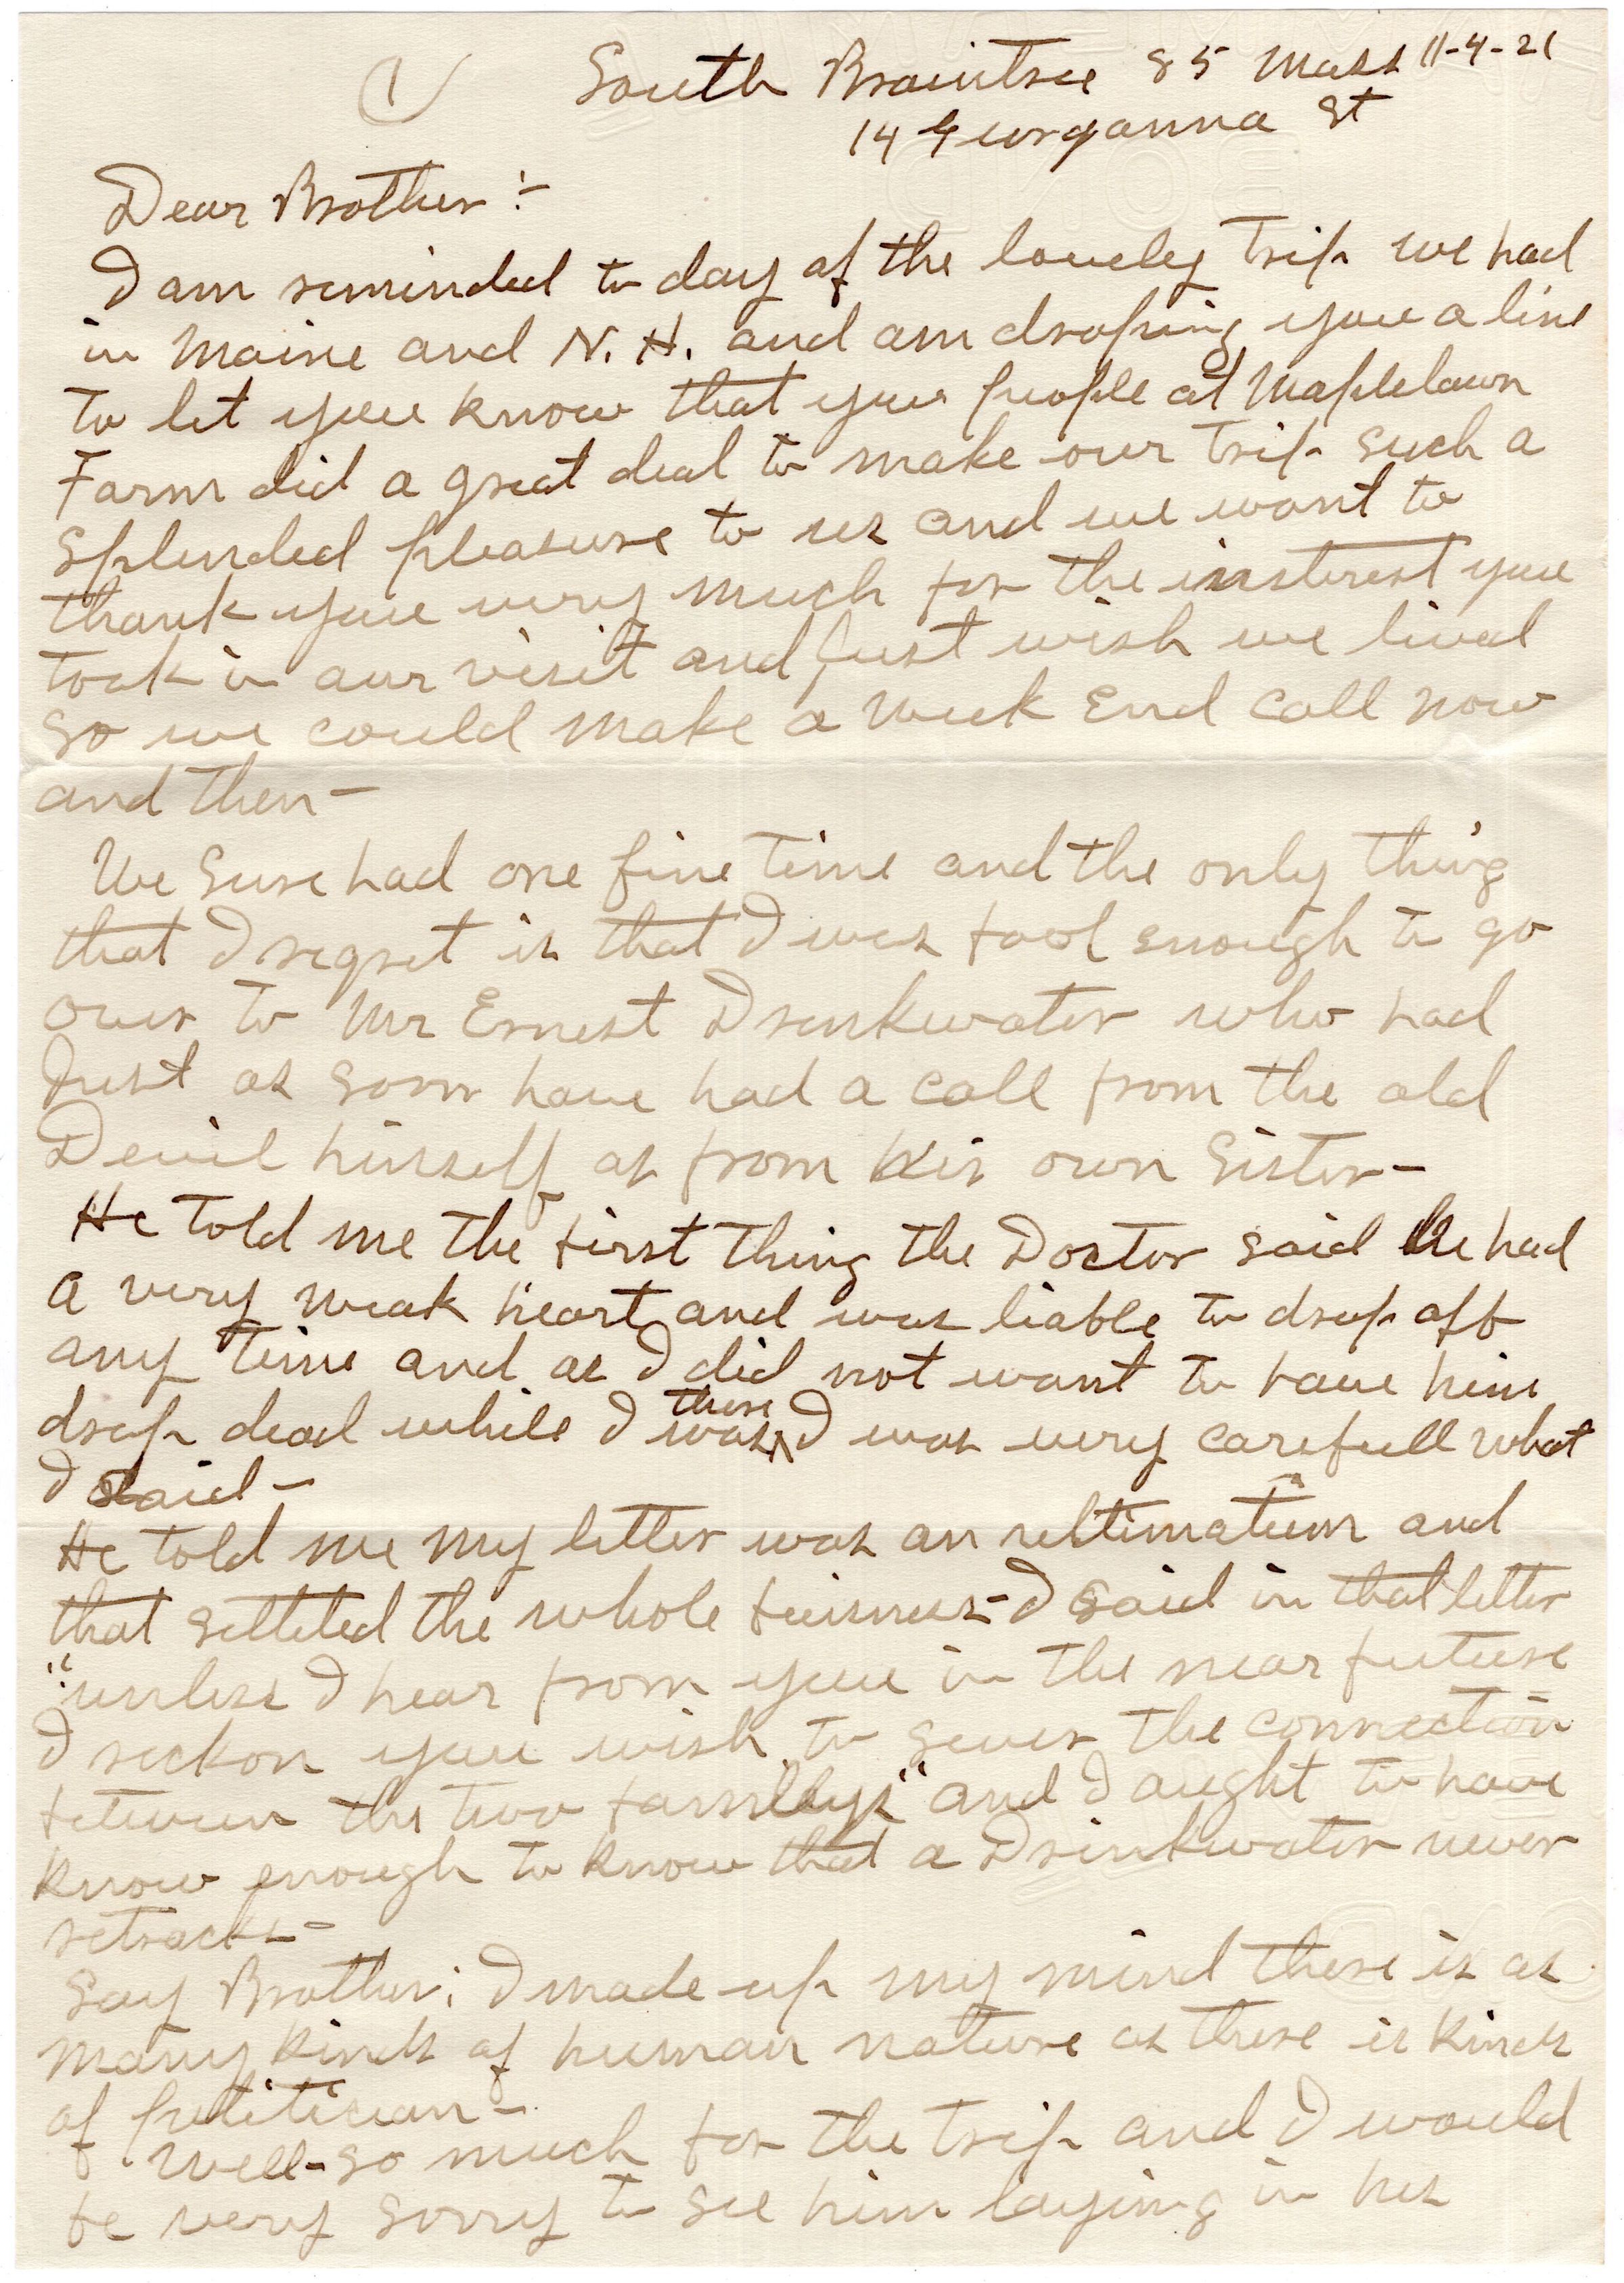 1
South Braintree 85 Mass 11-4-21
14 Georganna St
Dear Brother:-
I am reminded to day of the lovely Trip we had
in Maine and N. H. and am droping you a line
to let you know that you people at Maplelawn
Farm did a great deal to make our Trip such a
Splended pleasure to us and we want to
thank you very much for the insterest you
took in our visit and just wish we lived
so we could make a Week End call now
and then-
We Sure had one fine time and the only thing
that I regret is that I was fool enough to go
over to Mr Ernest Drinkwater who had
Just as soon have had a call from the old
Devil himself as from his own Sister-
He told me the first thing the Doctor said He had
a very weak heart and was liable to drop off
any time and as I did not want to have him
drop dead while I was there I was very carefull what
I said-
He told me my letter was an ultimatium and
that settled the whole buisness- I said in that letter
"unless I hear from you in the near future
I reckon you wish to sever the connection
between the two familys" and I aught to have
know enough to know that a Drinkwater never
retracts-
Say Brother; I made up my mind there is as
many kinds of human nature as there is kinds
of politician-
Well-so much for the trip and I would
be very sorry to see him laying in his